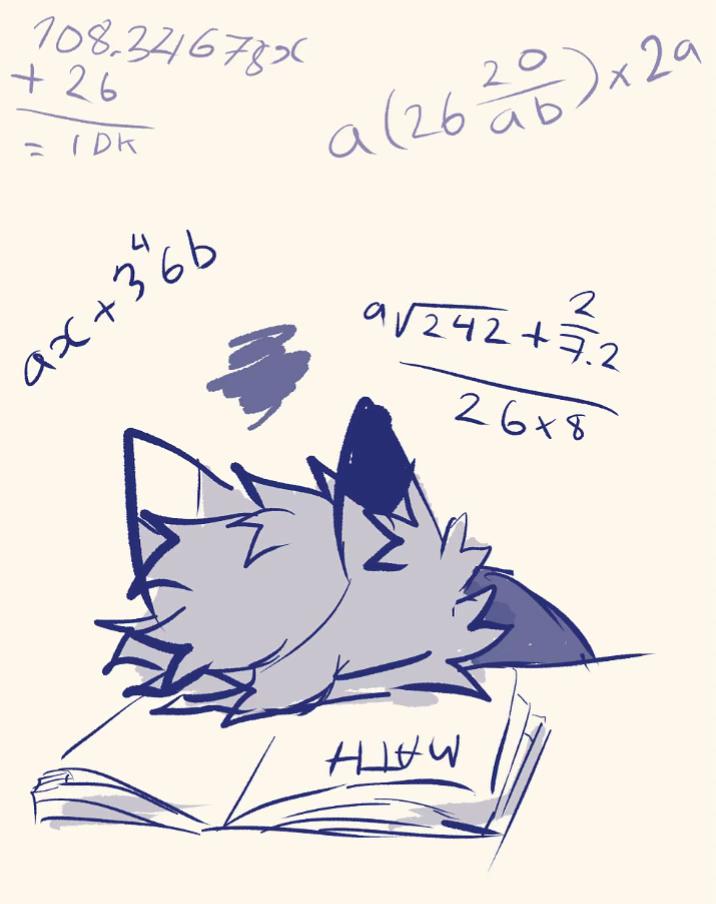 108.324678x
+ 26
= IDK
a(26 20/ab) x 2a
ax + 3⁴6b
a√242 + 2/7.2
26 x 8
MATH